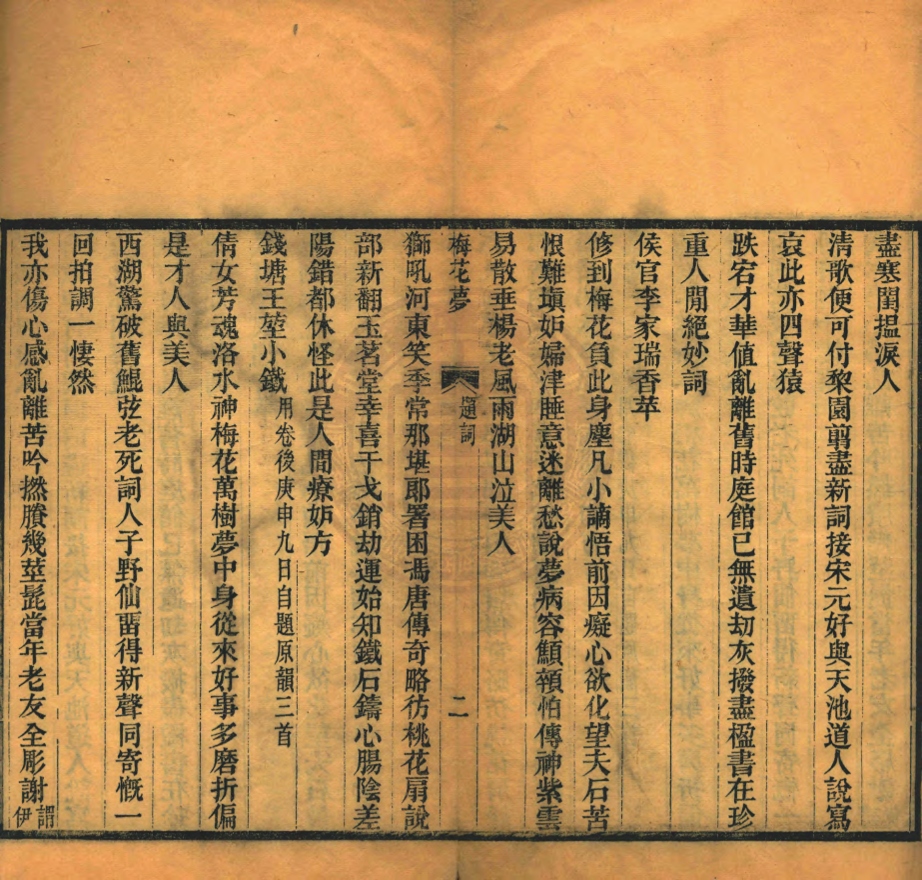 盡寒閨搵淚人
清歌便可付黎園剪盡新詞接宋元好與天池道人說寫
哀此亦四聲猿
跌宕才華值亂離舊時庭館已無遺劫灰撥盡楹書在珍
重人間絕妙詞
侯官李家瑞香苹
修到梅花負此身塵凡小謫悟前因癡心欲化望夫石苦
恨難塡妬婦津睡意迷離愁說夢病容顦顇怕傳神紫雲
易散垂楊老風雨湖山泣美人
梅花夢 題詞 二
獅吼河東笑季常那堪郎署困馮唐傳奇略彷桃花扇說
部新翻玉茗堂幸喜干戈銷劫運始知鐵石鑄心腸陰差
陽錯都休怪此是人間療妬方
錢塘王堃小鐵用卷後庚申九日自題原韻三首
倩女芳魂洛水神梅花萬樹夢中身從來好事多磨折偏
是才人與美人
西湖驚破舊鯤弦老死詞人子野仙畱得新聲同寄慨一
回拍調一悽然
我亦傷心感亂離苦吟撚賸幾莖髭當年老友全彫謝謂伊